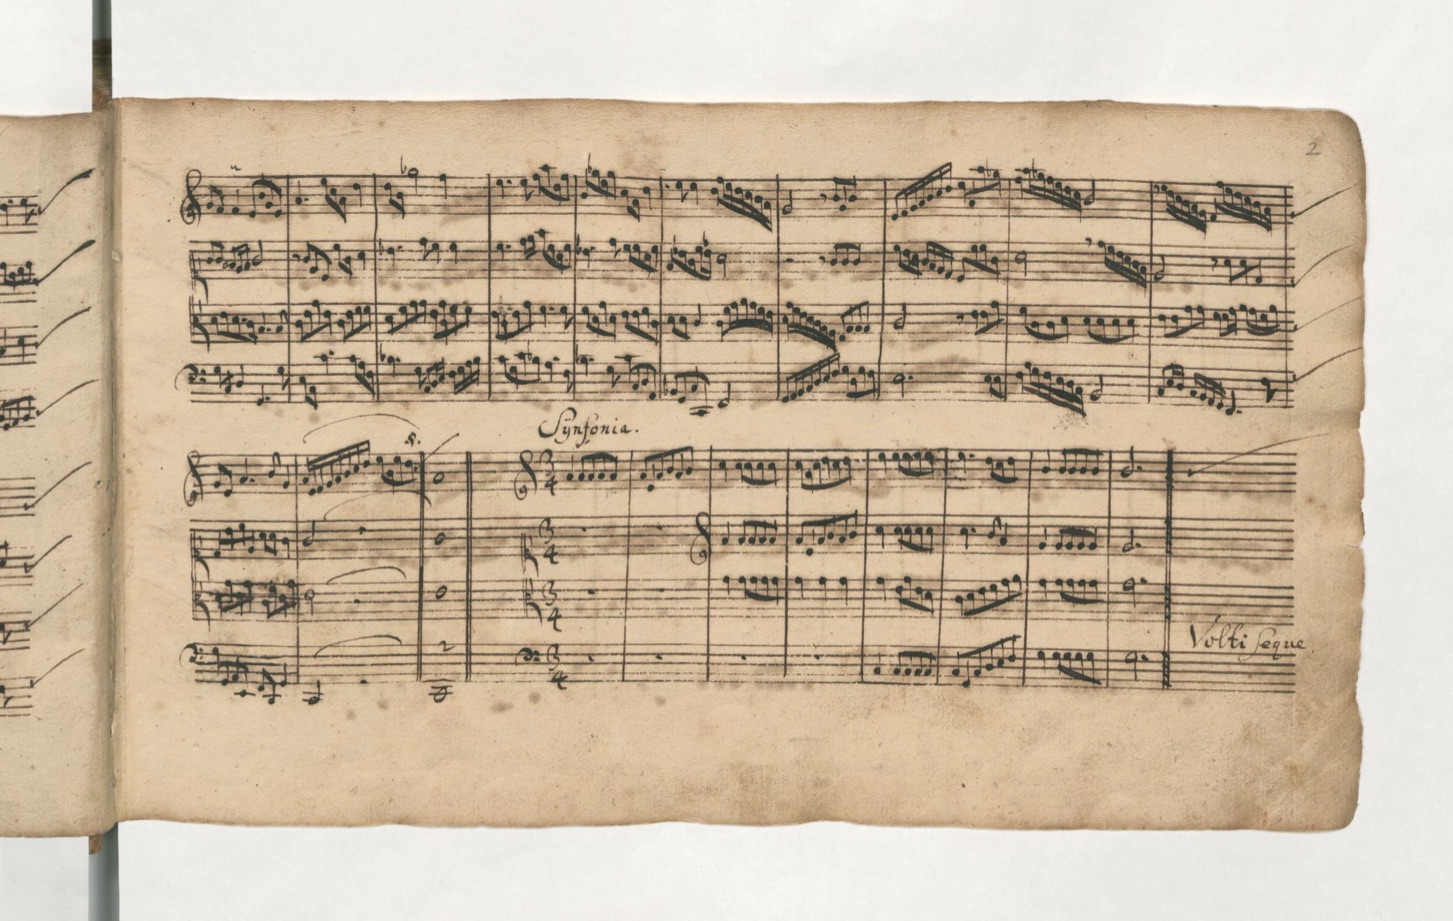 2
Sÿnfonia.
3 4
3 4
3 4
3 4
Volti seque.